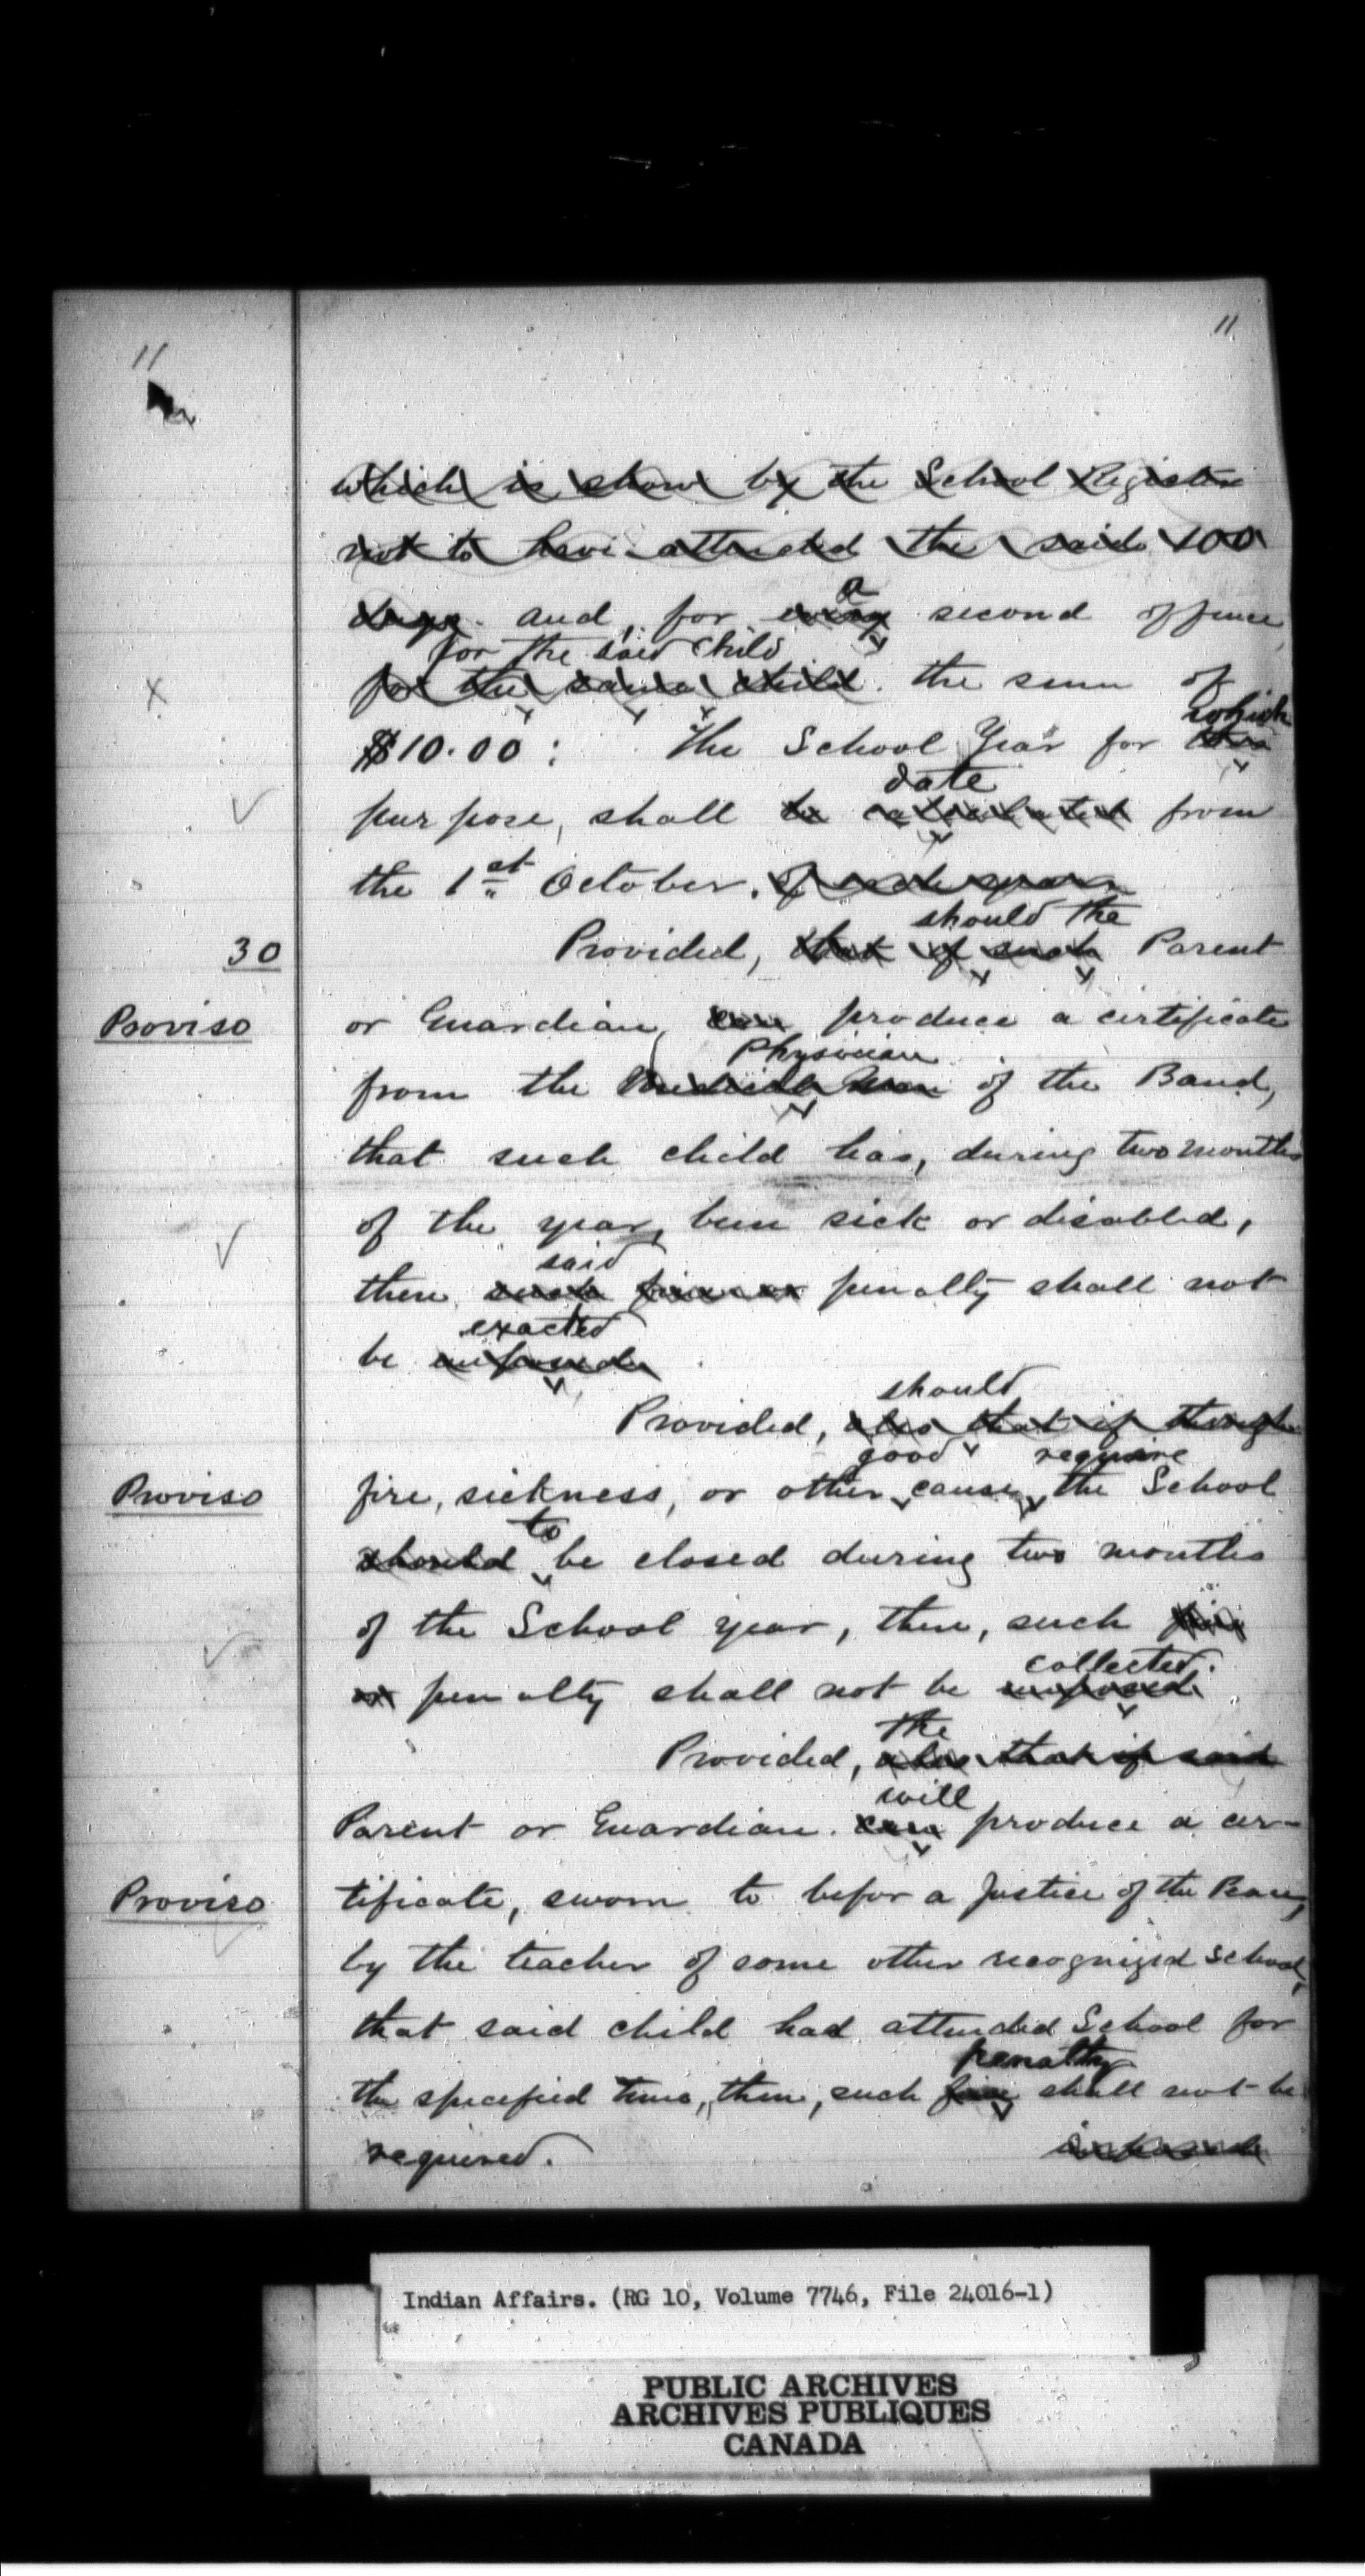 11
11
which is shown by the School Register
not to have attended the said 100
a
days. and, for every second offence
for the said child
for the same child. the sum of
which
$10.00 : The School Year for this
date
purpose, shall be calculated from
the 1st October. of each year.
should the
30
Provided, that if such Parent
Proviso
or Guardian, can produce a certificate
Physician
from the Medical Man of the Band,
that such child has, during two months
of the year, been sick or disabled,
said
then such fine or penalty shall not
exacted
be imposed.
should
Provided, also that if through
good require
Proviso
fire, sickness, or other cause, the School
to
should be closed during two months
of the School year, then, such fine
collected.
or penalty shall not be imposed.
the
Provided, also that if said
will
Parent or Guardian. can produce a cer-
Proviso
tificate, sworn to befor a Justice of the Peace,
by the teacher of some other recognized School,
that said child had attended School for
penalty
the specified time, then, such fine shall not be
required. imposed
Indian Affairs. (RG 10, Volume 7746, File 24016-1)
PUBLIC ARCHIVES
ARCHIVES PUBLIQUES
CANADA